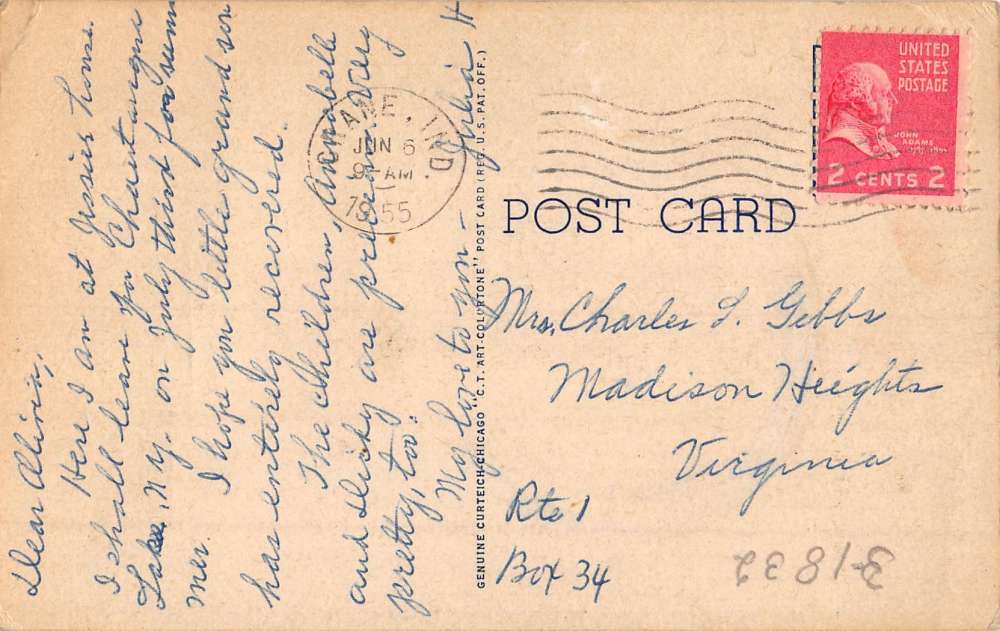 Dear Alivia,
Here I am at Jessie's home.
I shall leave for Chautauqua
Lake, N.Y. on July third for sum
mer.
I hope you little grand son
has entirely recovered.
The children, Annabelle
and Dicky are precious. Very
pretty, too.
My love to you —
Julia H
GENUINE CURTEICH-CHICAGO "C.T. ART-COLORTONE" POST CARD (REG. U.S. PAT. OFF.)
CRANE, IND
JUN 6
9 AM
1955
UNITED
STATES
POSTAGE
JOHN
ADAMS
2 CENTS 2
POST CARD
Mrs. Charles L. Gibbs
Madison Heights
Virginia
Rte 1
Box 34
3-1832